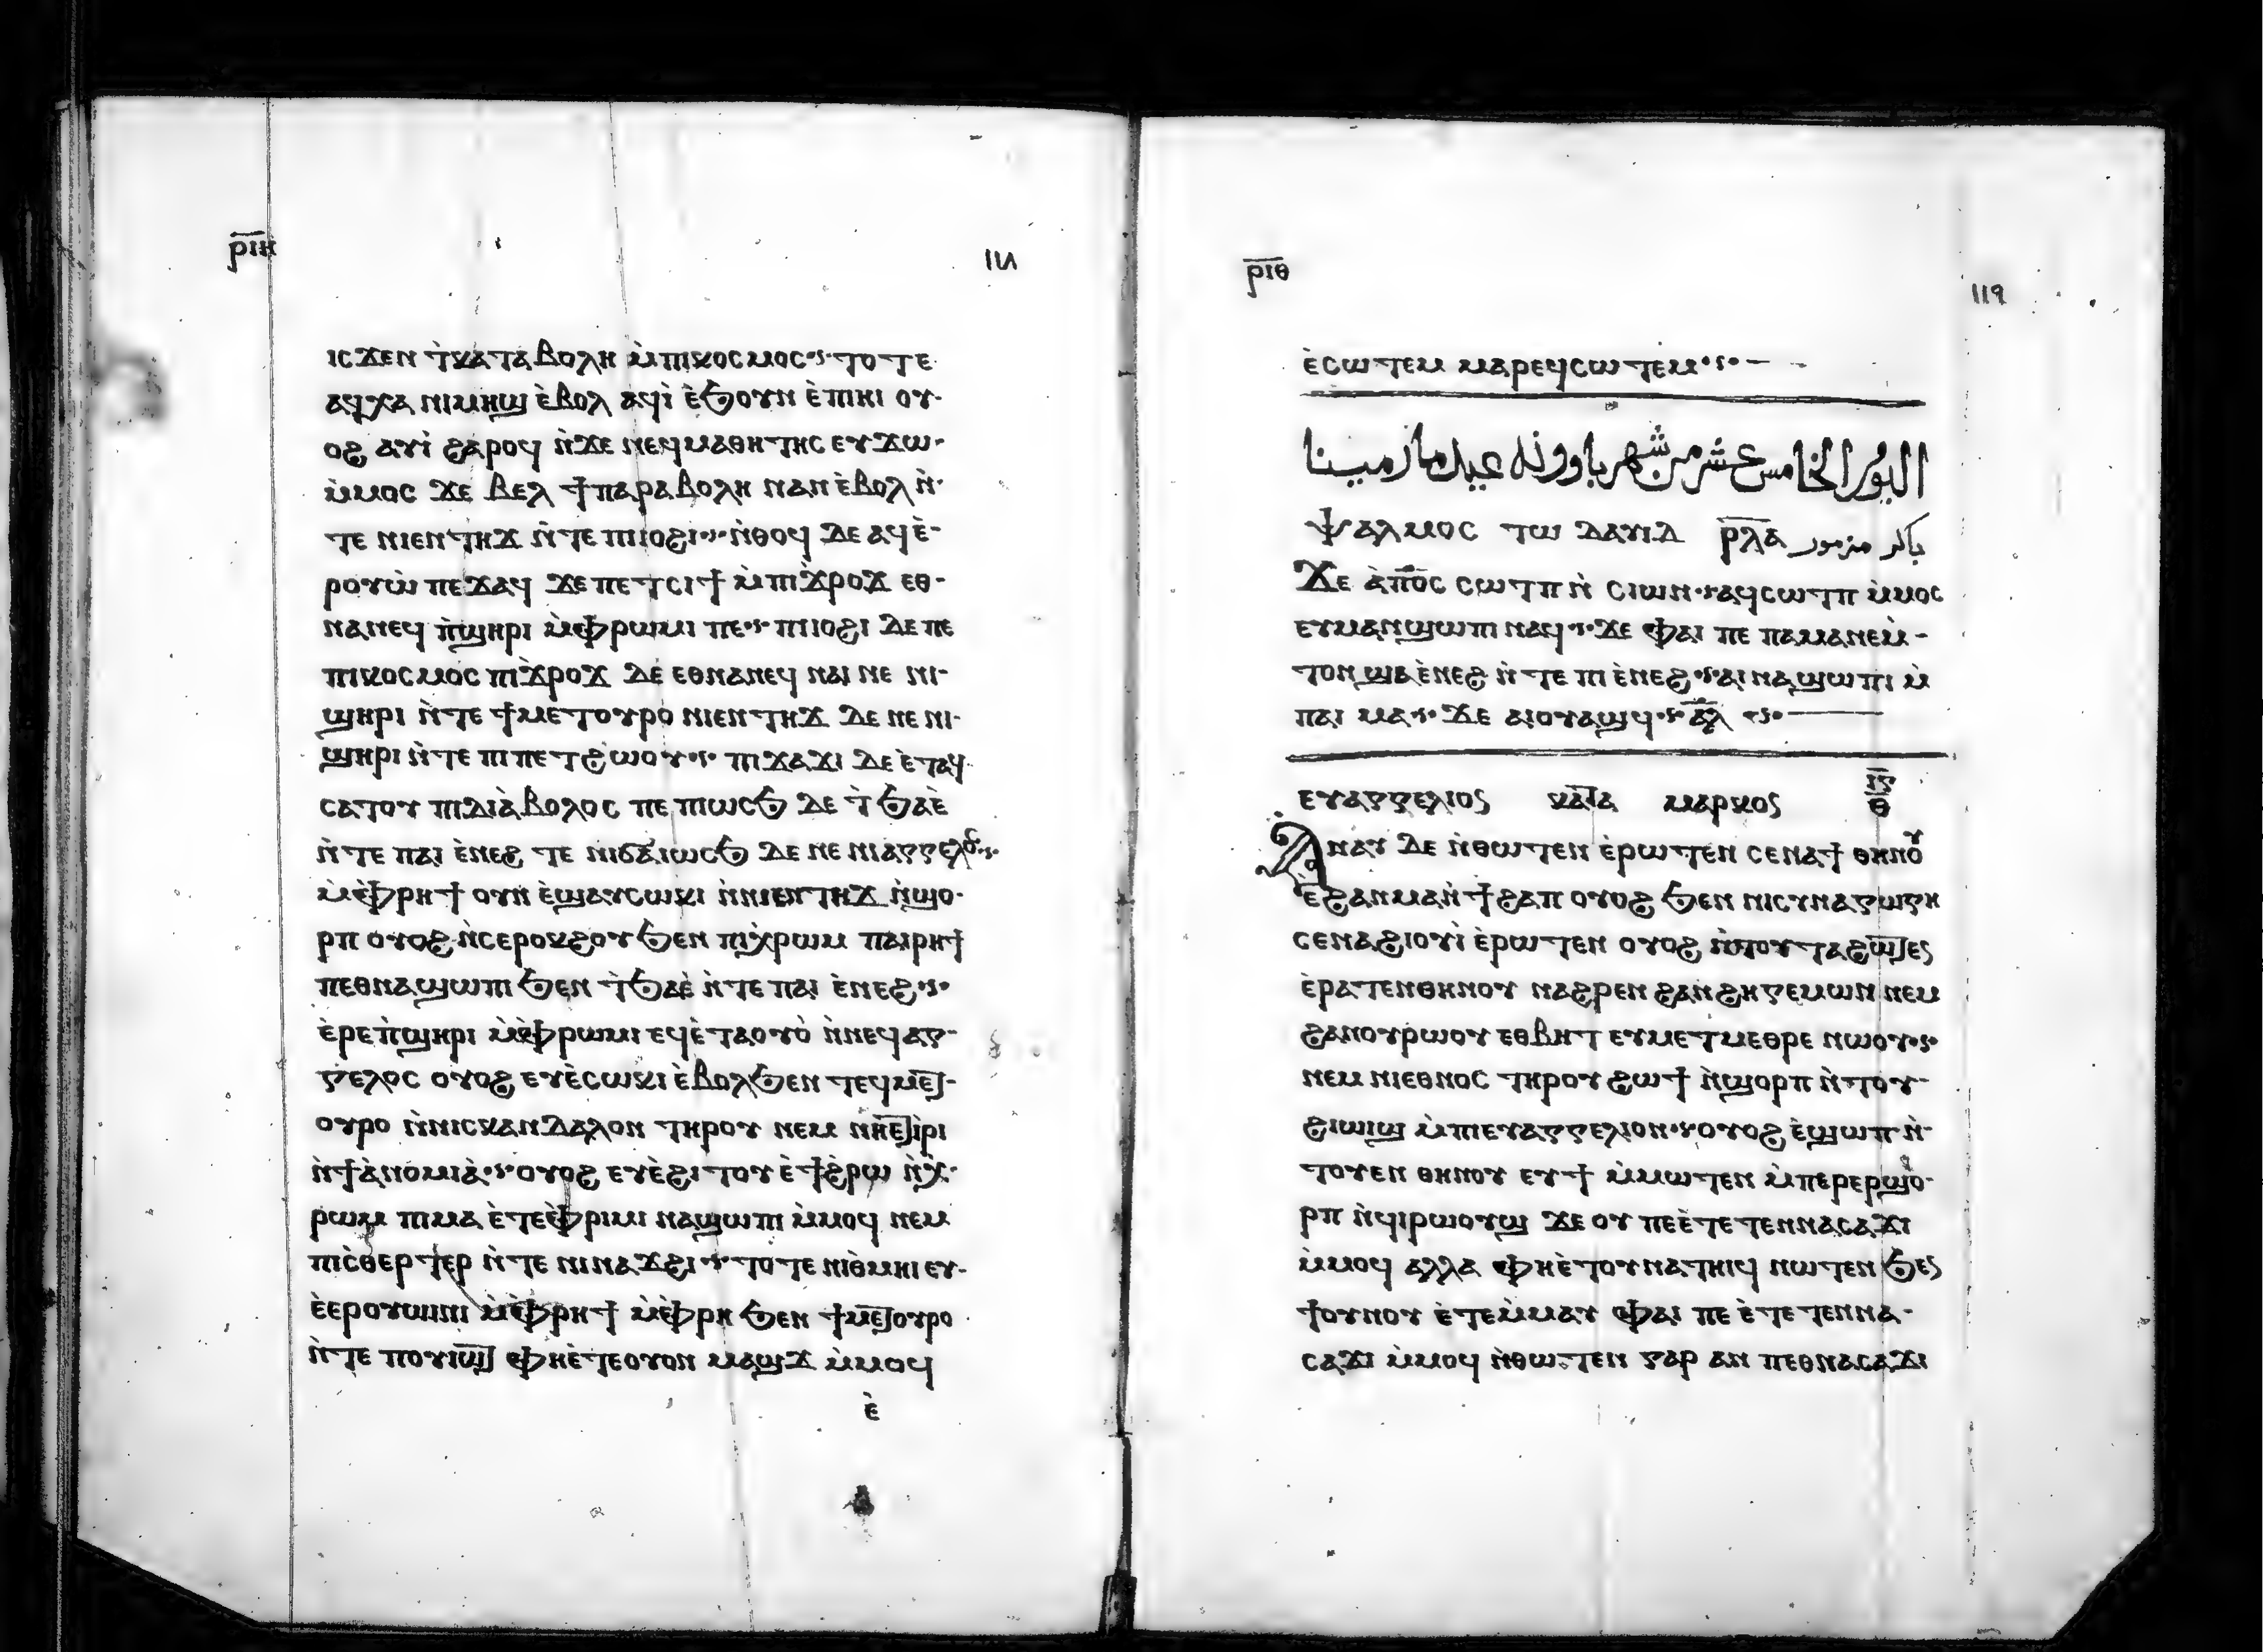 ⲣⲓⲏ
ⲓⲥϫⲉⲛ ϯ̀ⲕⲁⲧⲁⲃⲟⲗⲏ ⲙ̀ⲡⲓⲕⲟⲥⲙⲟⲥ·ⲋ· ⲧⲟⲧⲉ
ⲁϥⲭⲁ ⲛⲓⲙⲏϣ ⲉ̀ⲃⲟⲗ ⲁϥⲓ̀ ⲉ̀ϧⲟⲩⲛ ⲉ̀ⲡⲓⲏⲓ ⲟⲩ-
ⲟϩ ⲁⲩⲓ̀ ϩⲁⲣⲟϥ ⲛ̀ϫⲉ ⲛⲉϥⲙⲁⲑⲏⲧⲏⲥ ⲉⲩϫⲱ-
ⲙ̀ⲙⲟⲥ ϫⲉ ⲃⲉⲗ ϯⲡⲁⲣⲁⲃⲟⲗⲏ ⲛⲁⲛ ⲉ̀ⲃⲟⲗ ⲛ̀-
ⲧⲉ ⲛⲓⲉⲛⲧⲏϫ ⲛ̀ⲧⲉ ⲡⲓⲓⲟϩⲓ·ⲋ· ⲛ̀ⲑⲟϥ ⲇⲉ ⲁϥⲉ̀-
ⲣⲟⲩⲱ̀ ⲡⲉϫⲁϥ ϫⲉ ⲡⲉⲧⲥⲓϯ ⲙ̀ⲡⲓϫ̀ⲣⲟϫ ⲉⲑ-
ⲛⲁⲛⲉϥ ⲡ̀ϣⲏⲣⲓ ⲙ̀ⲫⲣⲱⲙⲓ ⲡⲉ·ⲋ· ⲡⲓⲓⲟϩⲓ ⲇⲉ ⲡⲉ
ⲡⲓⲕⲟⲥⲙⲟⲥ ⲡⲓϫ̀ⲣⲟϫ ⲇⲉ ⲉⲑⲛⲁⲛⲉϥ ⲛⲁⲓ ⲛⲉ ⲛⲓ-
ϣⲏⲣⲓ ⲛ̀ⲧⲉ ϯⲙⲉⲧⲟⲩⲣⲟ ⲛⲓⲉⲛⲧⲏϫ ⲇⲉ ⲛⲉ ⲛⲓ-
ϣⲏⲣⲓ ⲛ̀ⲧⲉ ⲡⲓⲡⲉⲧϩⲱⲟⲩ·ⲋ· ⲡⲓϫⲁϫⲓ ⲇⲉ ⲉ̀ⲧⲁϥ
ⲥⲁⲧⲟⲩ ⲡⲓⲇⲓⲁ̀ⲃⲟⲗⲟⲥ ⲡⲉ ⲡⲓⲱⲥϧ ⲇⲉ ⲧ̀ϧⲁⲉ̀
ⲛ̀ⲧⲉ ⲡⲁⲓ ⲉ̀ⲛⲉϩ ⲧⲉ ⲛⲓϭⲁⲓⲱⲥϧ ⲇⲉ ⲛⲉ ⲛⲓⲁⲅⲅⲉⲗⲟⲥ·ⲋ·
ⲙ̀ⲫⲣⲏϯ ⲟⲩⲛ ⲉ̀ϣⲁⲩⲥⲱⲕⲓ ⲛ̀ⲛⲓⲉⲛⲧⲏϫ ⲛ̀ϣⲟ-
ⲣⲡ ⲟⲩⲟϩ ⲛ̀ⲥⲉⲣⲟⲕϩⲟⲩ ϧⲉⲛ ⲡⲓⲭ̀ⲣⲱⲙ ⲡⲁⲓⲣⲏϯ
ⲡⲉⲑⲛⲁϣⲱⲡⲓ ϧⲉⲛ ⲧ̀ϧⲁⲉ̀ ⲛ̀ⲧⲉ ⲡⲁⲓ ⲉ̀ⲛⲉϩ·ⲋ·
ⲉ̀ⲣⲉ ⲡ̀ϣⲏⲣⲓ ⲙ̀ⲫⲣⲱⲙⲓ ⲉϥⲉ̀ⲧⲁⲟⲩⲟ̀ ⲛ̀ⲛⲉϥⲁⲅ-
ⲅⲉⲗⲟⲥ ⲟⲩⲟϩ ⲉⲩⲉ̀ⲥⲱⲕⲓ ⲉ̀ⲃⲟⲗϧⲉⲛ ⲧⲉϥⲙⲉⲧ-
ⲟⲩⲣⲟ ⲛ̀ⲛⲓⲥⲕⲁⲛⲇⲁⲗⲟⲛ ⲧⲏⲣⲟⲩ ⲛⲉⲙ ⲛⲏⲉⲧⲓⲣⲓ
ⲛ̀ϯⲁ̀ⲛⲟⲙⲓⲁ̀·ⲋ· ⲟⲩⲟϩ ⲉⲩⲉ̀ϩⲓⲧⲟⲩ ⲉ̀ϯϩ̀ⲣⲱ ⲛ̀ⲭ̀-
ⲣⲱⲙ ⲡⲓⲙⲁ ⲉ̀ⲧⲉⲫ̀ⲣⲓⲙⲓ ⲛⲁϣⲱⲡⲓ ⲙ̀ⲙⲟϥ ⲛⲉⲙ
ⲡⲓⲥ̀ⲑⲉⲣⲧⲉⲣ ⲛ̀ⲧⲉ ⲛⲓⲛⲁϫϩⲓ·ⲋ· ⲧⲟⲧⲉ ⲛⲓⲑ̀ⲙⲏⲓ ⲉⲩ-
ⲉ̀ⲉⲣⲟⲩⲱⲓⲛⲓ ⲙ̀ⲫⲣⲏϯ ⲙ̀ⲫⲣⲏ ϧⲉⲛ ϯⲙⲉⲧⲟⲩⲣⲟ
ⲛ̀ⲧⲉ ⲡⲟⲩⲓⲱⲧ ⲫⲏⲉ̀ⲧⲉⲟⲩⲟⲛ ⲙⲁϣϫ ⲙ̀ⲙⲟϥ
ⲉ̀
ⲣⲓⲑ
119
ⲉ̀ⲥⲱⲧⲉⲙ ⲙⲁⲣⲉϥⲥⲱⲧⲉⲙ·ⲋ·
اليوم الخامس عشر من شهر باوونه عيد مار مينا
ⲯⲁⲗⲙⲟⲥ ⲧⲱ ⲇⲁⲩⲓⲇ ⲣⲗⲁ باكر مزمور
ϫⲉ ⲁ̀ⲡⲟ̅ⲥ̅ ⲥⲱⲧⲡ ⲛ̀ ⲥⲓⲱⲛ·ⲋ· ⲁϥⲥⲱⲧⲡ ⲙ̀ⲙⲟⲥ
ⲉⲩⲙⲁⲛϣⲱⲡⲓ ⲛⲁϥ·ⲋ· ϫⲉ ⲫⲁⲓ ⲡⲉ ⲡⲁⲙⲁⲛⲉⲙ̀-
ⲧⲟⲛ ϣⲁ ⲉ̀ⲛⲉϩ ⲛ̀ⲧⲉ ⲡⲓ ⲉ̀ⲛⲉϩ·ⲋ· ⲁⲓⲛⲁϣⲱⲡⲓ ⲙ̀
ⲡⲁⲓ ⲙⲁ·ⲋ· ϫⲉ ⲁⲓⲟⲩⲁϣϥ·ⲋ· ⲁ̅ⲗ̅ ·ⲋ·
ⲉⲩⲁⲅⲅⲉⲗⲓⲟⲥ ⲕⲁⲧⲁ ⲙⲁⲣⲕⲟⲥ ⲓ̅ⲅ̅ ⲑ̅
ⲁⲛⲁⲩ ⲇⲉ ⲛ̀ⲑⲱⲧⲉⲛ ⲉ̀ⲣⲱⲧⲉⲛ ⲥⲉⲛⲁϯ ⲑⲏⲛⲟⲩ
ⲉ̀ϩⲁⲛⲙⲁⲛ̀ϯϩⲁⲡ ⲟⲩⲟϩ ϧⲉⲛ ⲛⲓⲥⲩⲛⲁⲅⲱⲅⲏ
ⲥⲉⲛⲁϩⲓⲟⲩⲓ̀ ⲉ̀ⲣⲱⲧⲉⲛ ⲟⲩⲟϩ ⲛ̀ⲧⲟⲩⲧⲁϩⲱⲧⲉⲛ
ⲉ̀ⲣⲁⲧⲉⲛⲑⲏⲛⲟⲩ ⲛⲁϩⲣⲉⲛ ϩⲁⲛϩⲏⲅⲉⲙⲱⲛ ⲛⲉⲙ
ϩⲁⲛⲟⲩⲣⲱⲟⲩ ⲉⲑⲃⲏⲧ ⲉⲩⲙⲉⲧⲙⲉⲑⲣⲉ ⲛⲱⲟⲩ·ⲋ·
ⲛⲉⲙ ⲛⲓⲉⲑⲛⲟⲥ ⲧⲏⲣⲟⲩ ϩⲱϯ ⲛ̀ϣⲟⲣⲡ ⲛ̀ⲧⲟⲩ-
ϩⲓⲱⲓϣ ⲙ̀ⲡⲓⲉⲩⲁⲅⲅⲉⲗⲓⲟⲛ·ⲋ· ⲟⲩⲟϩ ⲉ̀ϣⲱⲡ ⲛ̀-
ⲧⲟⲩⲉⲛ ⲑⲏⲛⲟⲩ ⲉⲩϯ ⲙ̀ⲙⲱⲧⲉⲛ ⲙ̀ⲡⲉⲣⲉⲣϣⲟ-
ⲣⲡ ⲛ̀ϥⲓⲣⲱⲟⲩϣ ϫⲉ ⲟⲩ ⲡⲉⲉ̀ⲧⲉⲧⲉⲛⲛⲁⲥⲁϫⲓ
ⲙ̀ⲙⲟϥ ⲁⲗⲗⲁ ⲫⲏⲉ̀ⲧⲟⲩⲛⲁⲧⲏⲓϥ ⲛⲱⲧⲉⲛ ϧⲉⲛ
ϯⲟⲩⲛⲟⲩ ⲉ̀ⲧⲉⲙ̀ⲙⲁⲩ ⲫⲁⲓ ⲡⲉ ⲉ̀ⲧⲉⲧⲉⲛⲛⲁ-
ⲥⲁϫⲓ ⲙ̀ⲙⲟϥ ⲛ̀ⲑⲱⲧⲉⲛ ⲅⲁⲣ ⲁⲛ ⲡⲉⲑⲛⲁⲥⲁϫⲓ